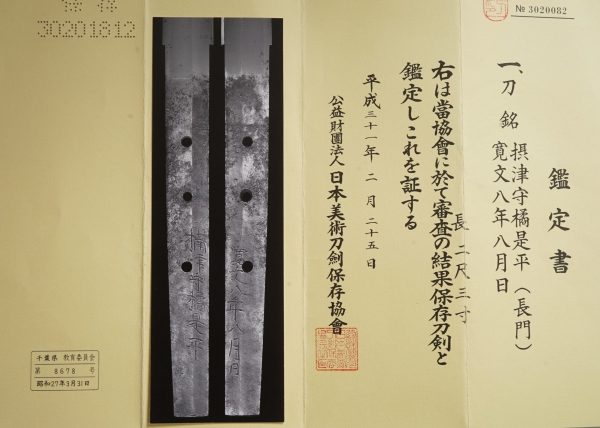 № 3020082
鑑定書
一、刀 銘 摂津守橘是平（長門）
寛文八年八月日
長 二尺三寸
右は當協會に於て審査の結果保存刀剣と
鑑定しこれを証する
平成三十一年 二月 二十五日
公益財團法人 日本美術刀剣保存協會
摂津守橘是平
寛文八年八月日
30201812
千葉県 教育委員会
第 8678 号
昭和27年3月31日